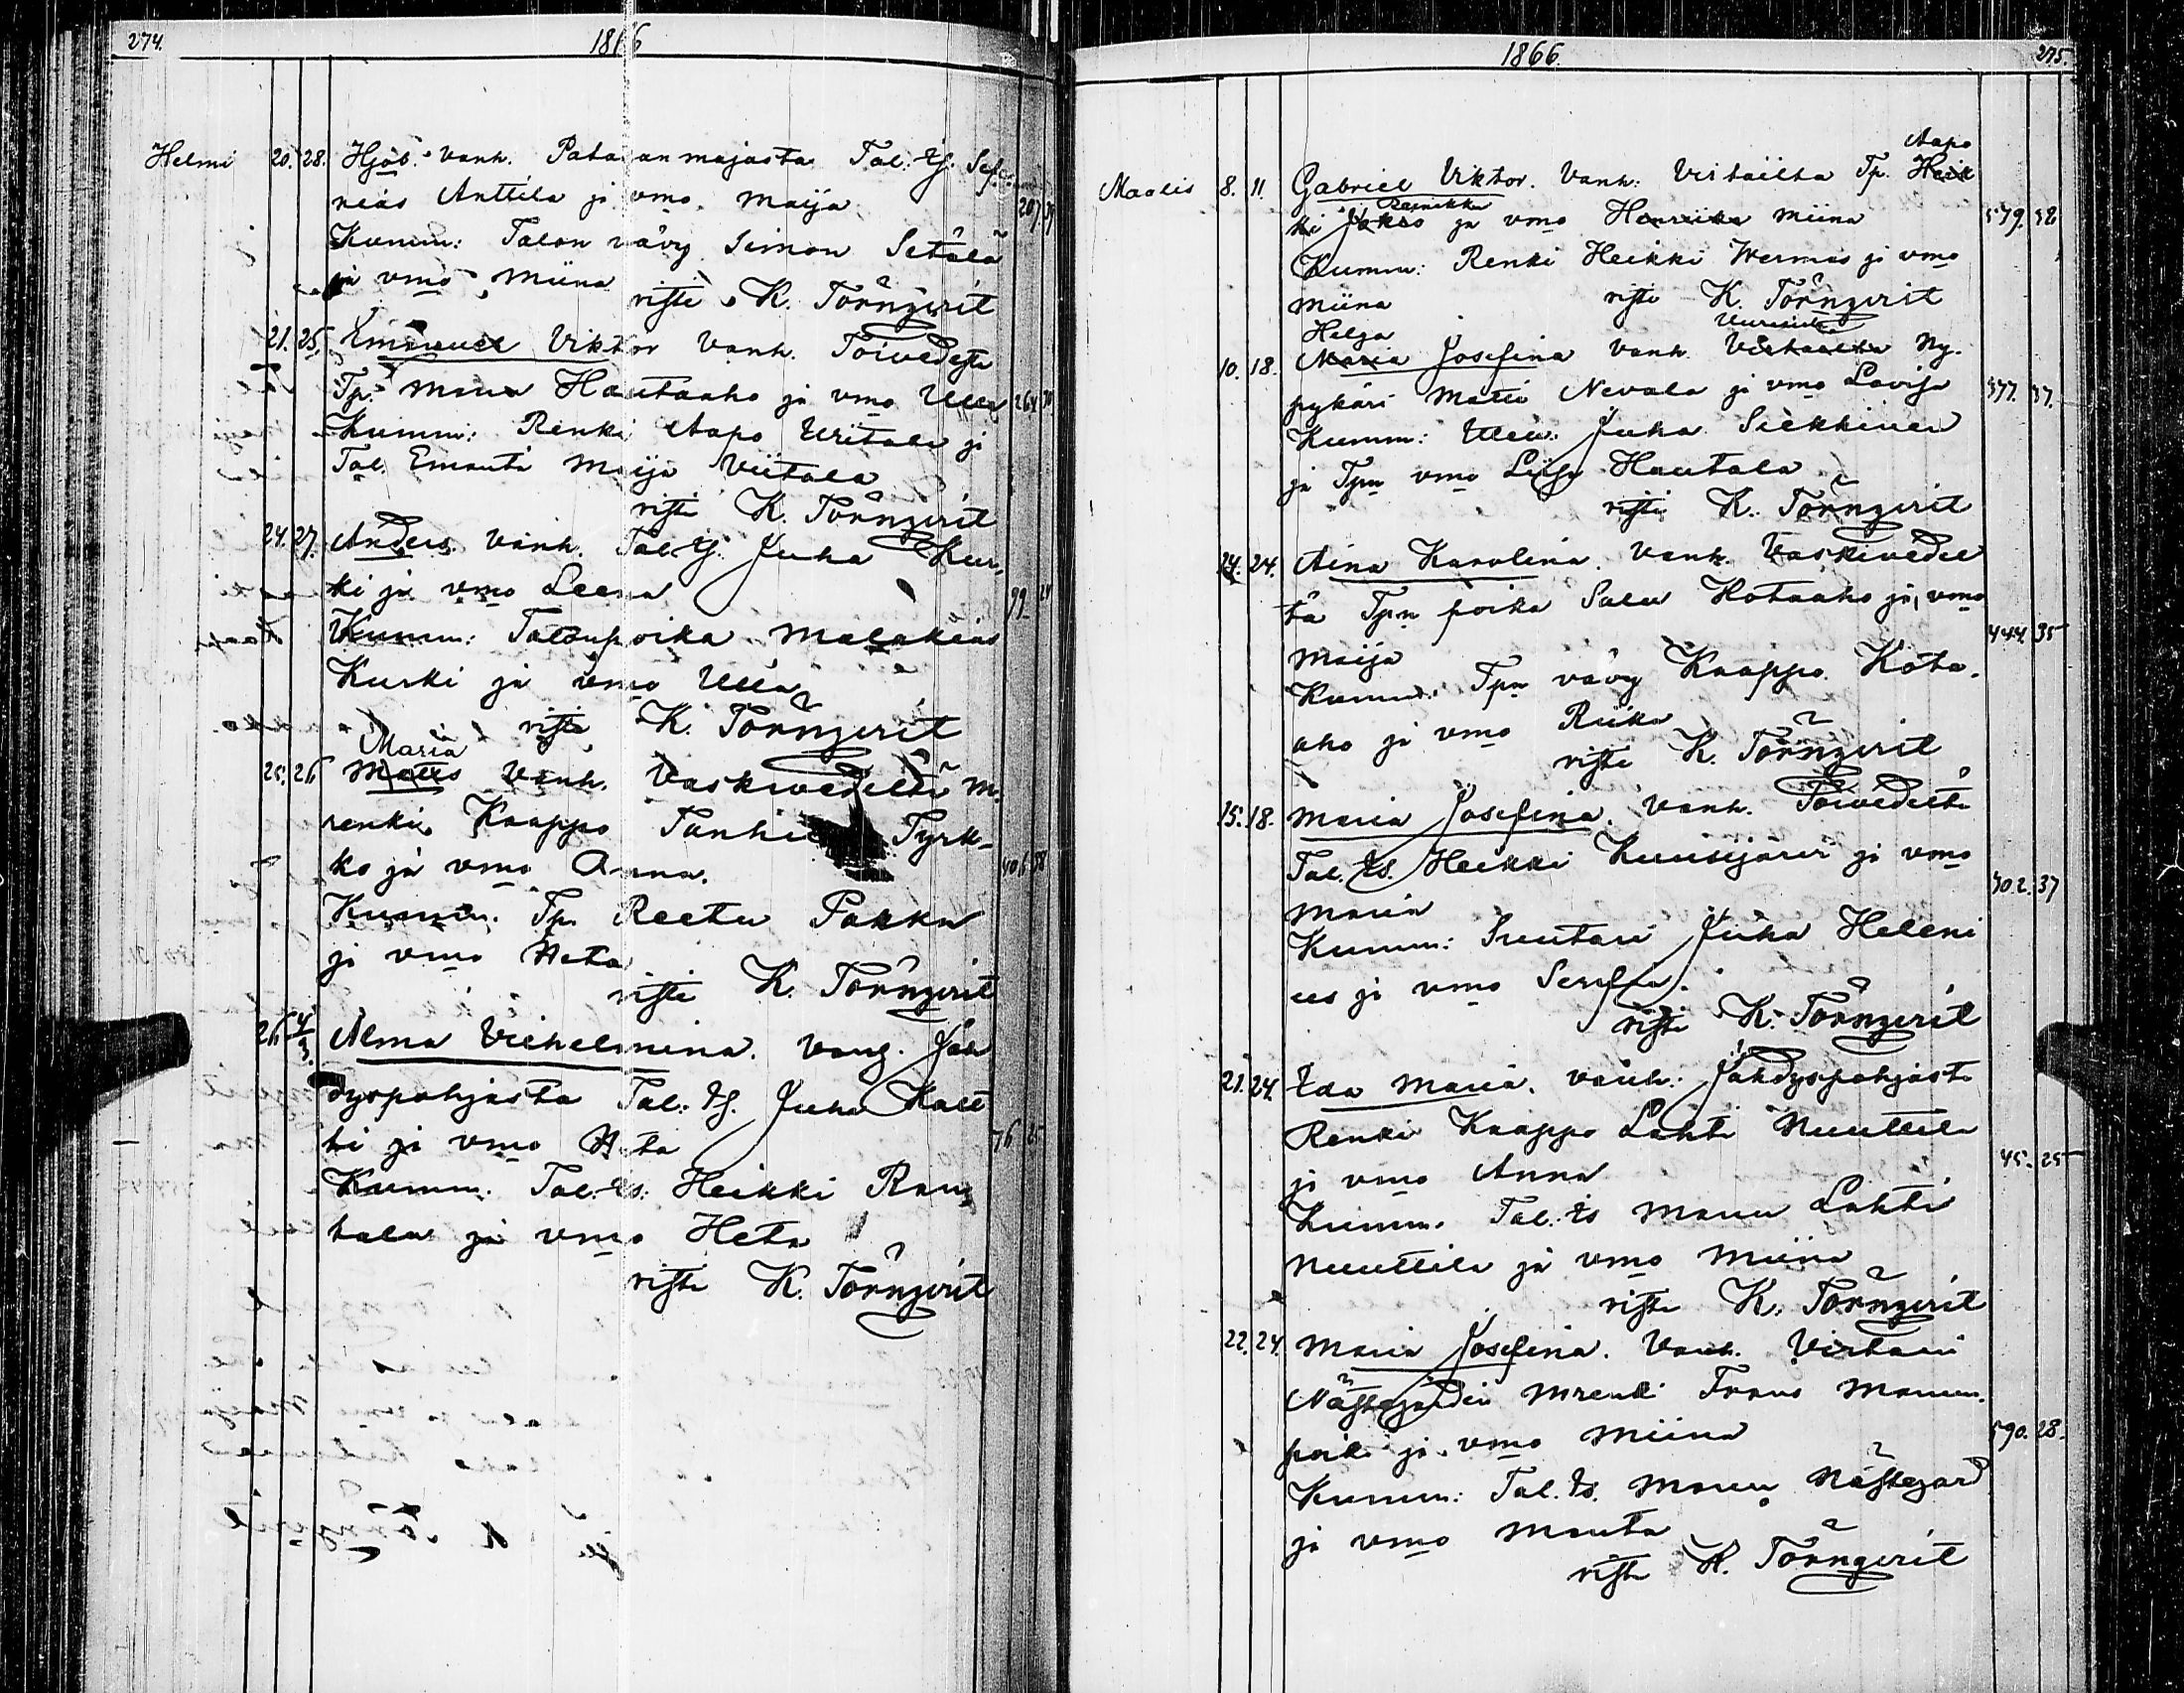 274.
1866
Helmi 20. 28. Hjob. Vanh. Patajanmajasta Tal. Ej. Sef
nias Anttila ja vmo. Maija 207 39
Kumm: Talon vävy Simon Setälä
ja vmo Miina
risti K. Törnqvist
21. 25. Emanuel Viktor Vanh. Toivedelta
Tp. Manu Hautaaho ja vmo Ulla 264 30
Kumm: Renki Aapo Viitala ja
Tal. Emäntä Maija Viitala
risti K. Törnqvist
24. 27. Anders. Vanh. Tal. Ej. Juha Kur-
ki ja vmo Leena 99 24
Kumm: Talonpoika Malakias
Kurki ja vmo Ulla
risti K. Törnqvist
Maria
25. 26 Matts Vanh. Vaskivedeltä m.
renki Kaappo Tanhu Tyrk-
ko ja vmo Anna. 406 38
Kumm. Tp. Reetu Pakka
ja vmo Heta
risti K. Törnqvist
26 4/3. Alma Vilhelmina. Vang. Jäh
dyspohjasta Tal. Ej. Juha Katt
ti ja vmo Heta 76 25
Kumm. Tal. Es. Heikki Rau
tala ja vmo Heta
risti K. Törnqvist
1866.
275.
Aapo
Maalis 8. 11. Gabriel Viktor. Vanh: Virtailta Tp. Heik
ki Jakso ja vmo Henrika Miina 579. 32
Kumm: Renki Heikki Wermas ja vmo
Miina risti K. Törnqvist
Helga
10. 18. Maria Josefina Vanh. Virtailta Ny.
pykäri Matti Nevala ja vmo Lovisa 377. 37.
Kumm: Juha Siekkinen
ja Tpn vmo Liisa Hautala
risti K. Törnqvist
24. 24. Aina Karolina. Vanh. Vaskivedel
tä Tpn poika Salu Kotaaho ja vmo
Maija 444. 35
Kumm. Tpn vävy Kaappo Kota-
aho ja vmo Riika
risti K. Törnqvist
15. 18. Maria Josefina. Vanh. Toivedelta
Tal. Es. Heikki Kuusijärvi ja vmo
Maria 302. 37
Kumm: Suutari Juha Heleni
us ja vmo Serafia.
risti K. Törnqvist
21. 24. Eda Maria. Vanh: Jähdyspohjasta
Renki Kaappo Lahti Nuuttila
ja vmo Anna 45. 25
Kumm. Tal. Es Manu Lahti
Nuuttila ja vmo Miina
risti K. Törnqvist
22. 24. Maria Josefina. Vanh. Virtain
Nästegårdin Mrenki Frans Manun
poik ja vmo Miina 590. 28.
Kumm: Tal. Es. Manu Nästegård
ja vmo Manta
risti K. Törnqvist